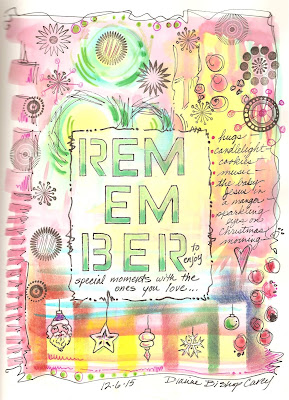 REM
EM
BER to
enjoy
special moments with the
ones you love...
• hugs
• candlelight
• cookies
• music
• the baby
Jesus in
a manger
• sparkling
eyes on
Christmas
morning
12·6·15 Dianne Bishop Carey